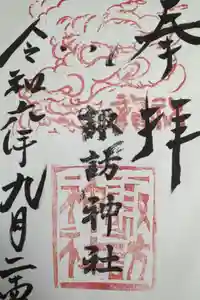 奉拝
諏訪神社
令和六年九月二